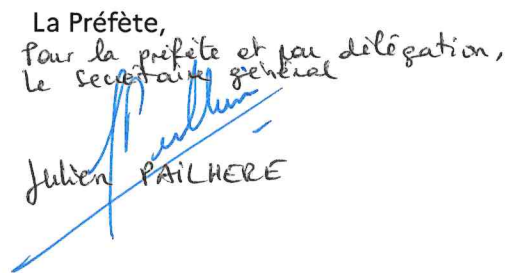 La Préfète,
Pour la préfète et par délégation,
Le secrétaire général
Julien PAILHERE